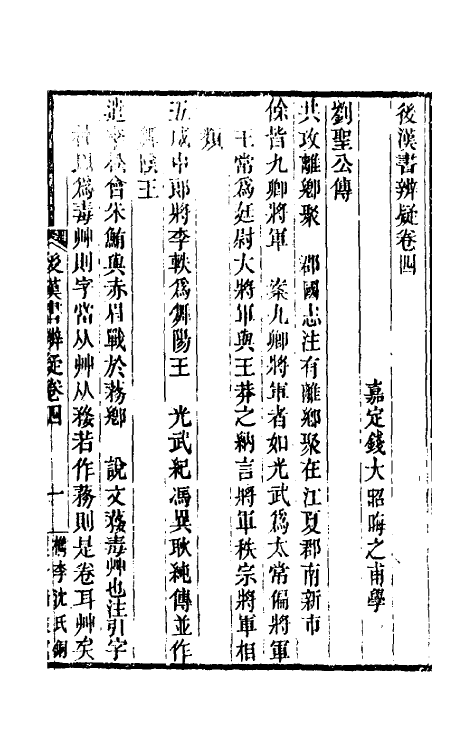 後漢書辨疑卷四
嘉定錢大昭晦之甫學
劉聖公傳
共攻離鄉聚　郡國志注有離鄉聚在江夏郡南新市
餘皆九卿將軍　案九卿將軍者如光武為太常偏將軍
王常為廷尉大將軍與王莽之納言將軍秩宗將軍相
類
五威中郎將李軼為舞陽王　光武紀馮異耿純傳並作
舞陰王
遣李松會朱鮪與赤眉戰於蓩鄉　說文蓩毒艸也注引字
為毒艸則字當从艸从務若作蓩則是卷耳艸矣
後漢書辨疑卷四
一
檇李沈氏銅